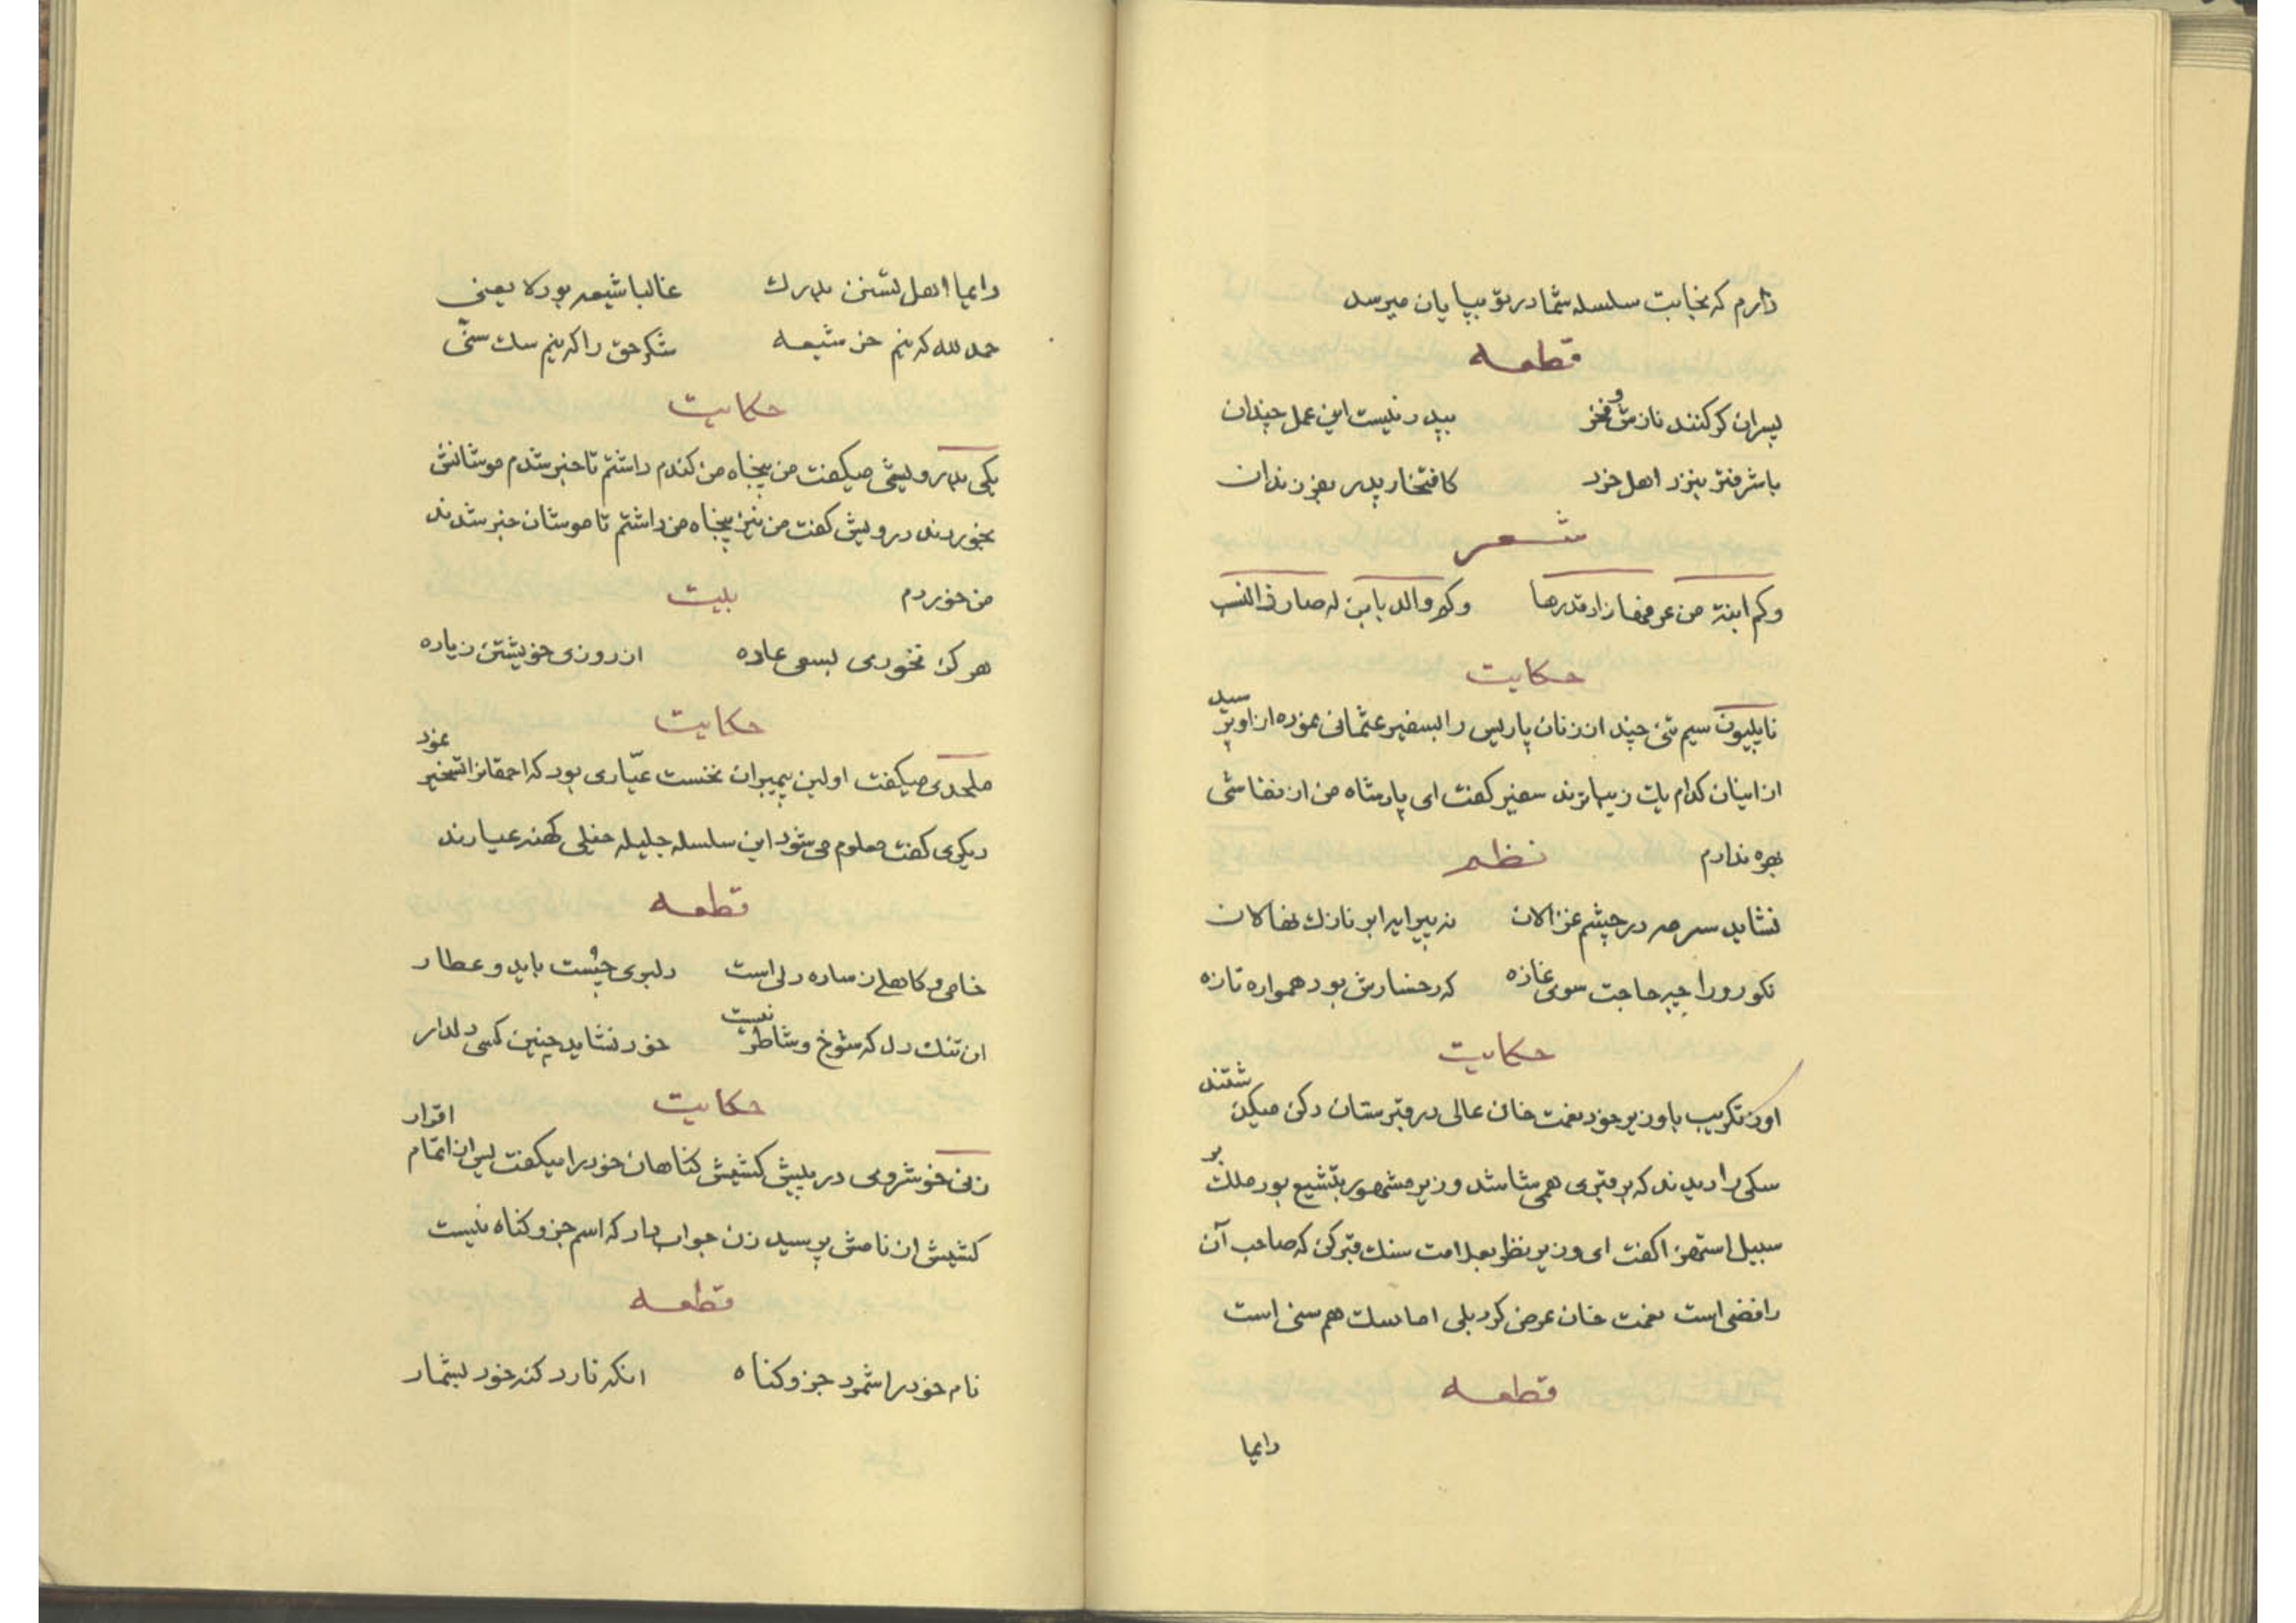 دارم که نجابت سلسله شما در تو بپایان میرسد
قطعه
پسران گر کنند نازش و فخر بپدر نیست این عمل چندان
باشرفتر بنزد اهل خرد کافتخار پدر بفرزندان
شعر
وکم ابنة من عرفها زاد قدرها وکم والد بابن له صار ذا النسب
حکایت
ناپلیون سیم تنی چند از زنان پاریس را بسفیر عثمانی نموده از او پرسید
از اینان کدام یک زیباترند سفیر گفت ای پادشاه من از نقاشی
بهره ندارم نظم
نشاید سرمه در چشم غزالان نه پیرایه ابر نازک نهالان
نکورو را چه حاجت سوی غازه که رخسارش بود همواره تازه
حکایت
اورنگزیب با وزیر خود نعمت خان عالی در قبرستان دکن میگذشتند
سگی را دیدند که بر قبری همی شاشد وزیر مشهور بتشیع بود ملک بر
سبیل استهزا گفت ای وزیر بنظر بعلامت سنگ قبر کن که صاحب آن
رافضی است نعمت خان عرض کرد بلی اما سگ هم سنی است
قطعه
دایما
دایما اهل تسنن بدرک غالبا شیعه بود لا یعنی
حمد لله که نیم خر شیعه شکر حق را که نیم سگ سنّی
حکایت
یکی بدرویشی میگفت من پنجاه من گندم داشتم تا خبر شدم موشانش
بخوردند درویش گفت من نیز پنجاه من داشتم تا موشان خبر شدند
من خوردم بیت
هرگز نخوری بسعی عاده از روزی خویشتن زیاده
حکایت
ملحدی میگفت اولین پیمبران نخست عیّاری بود که احمقانرا تسخیر نمود
دیگری گفت معلوم می شود این سلسله جلیله خیلی کهنه عیارند
قطعه
خامی و کاهلی ز ساده دلی است دلبری چست باید و عطار
ان تنک دل که شوخ و شاطر نیست خود نشاید چنین کسی دلدار
حکایت
زنی خوشروی در پیش کشیش گناهان خود را میگفت پس از اتمام اقرار
کشیش از نامش پرسید زن جواب داد که اسم جزو گناه نیست
قطعه
نام خود را شمرد جزو گناه انکه نارد گنه خود بشمار